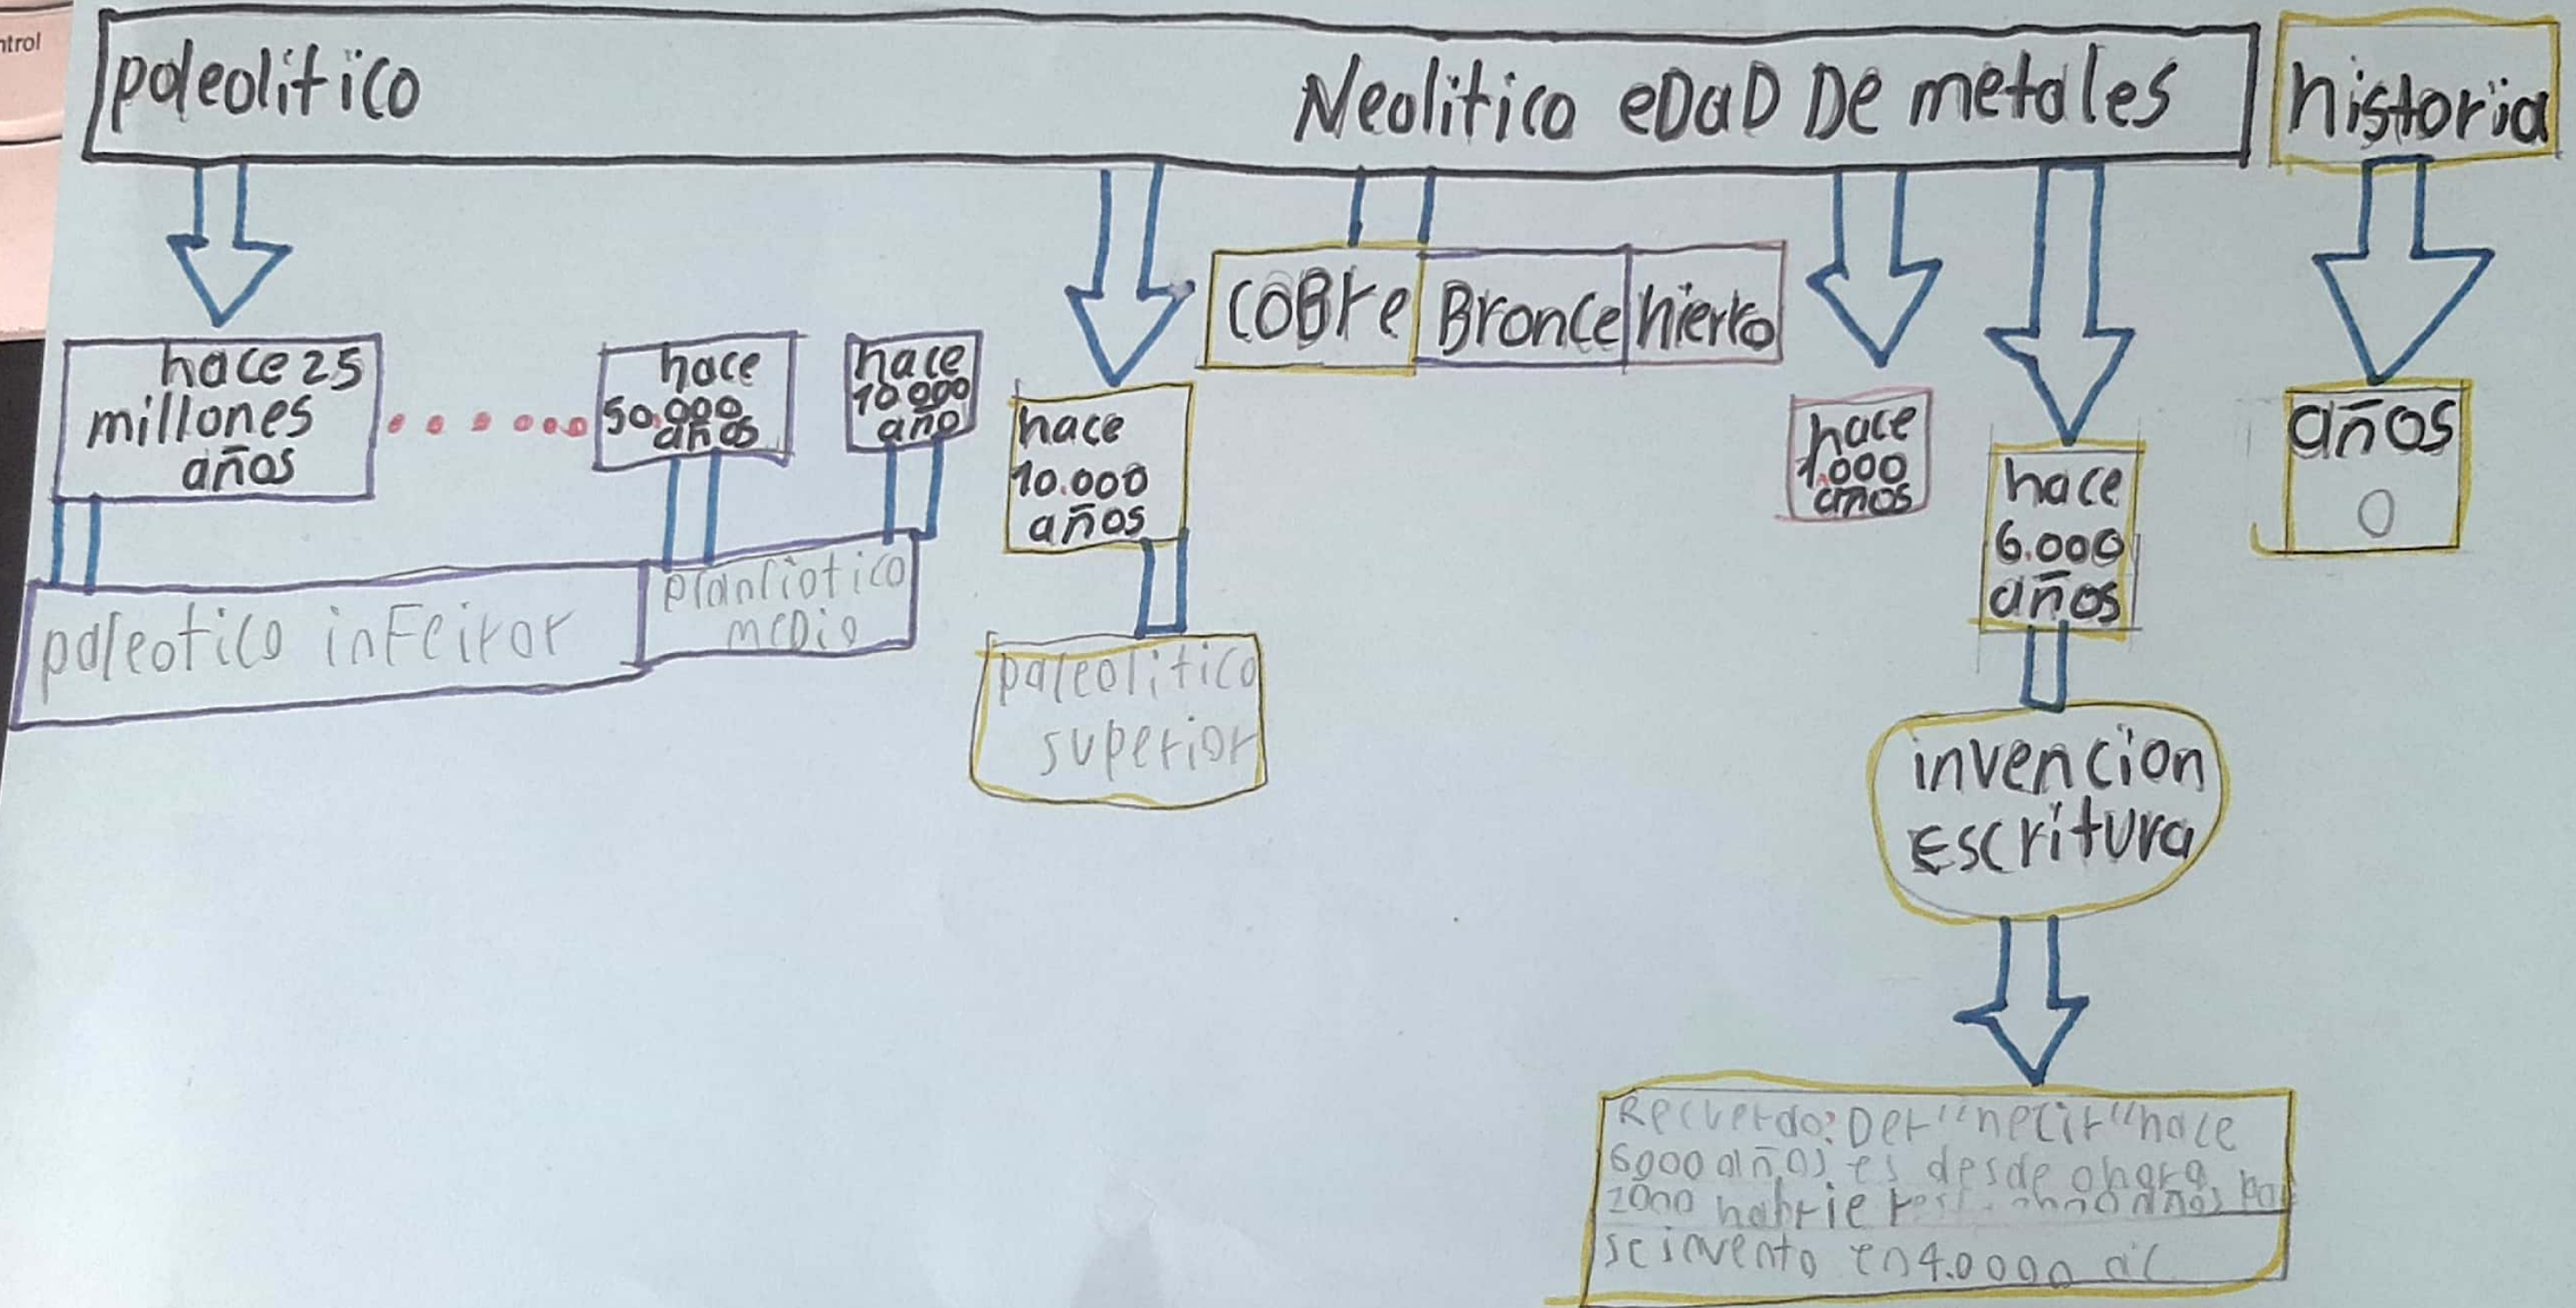 ntrol
paleolitico Neolitico eDaD De metales historia
hace 25
millones
años
hace
50.000
años
hace
10.000
año
hace
10.000
años
coBre Bronce hierro
hace
1.000
años
hace
6.000
años
años
0
paleotico inFeiror
medio
paleolitico
superior
invencion
Escritura
Recuerdo: "hace
6000 años es desde ahora
2000 años
se invento en 4.000